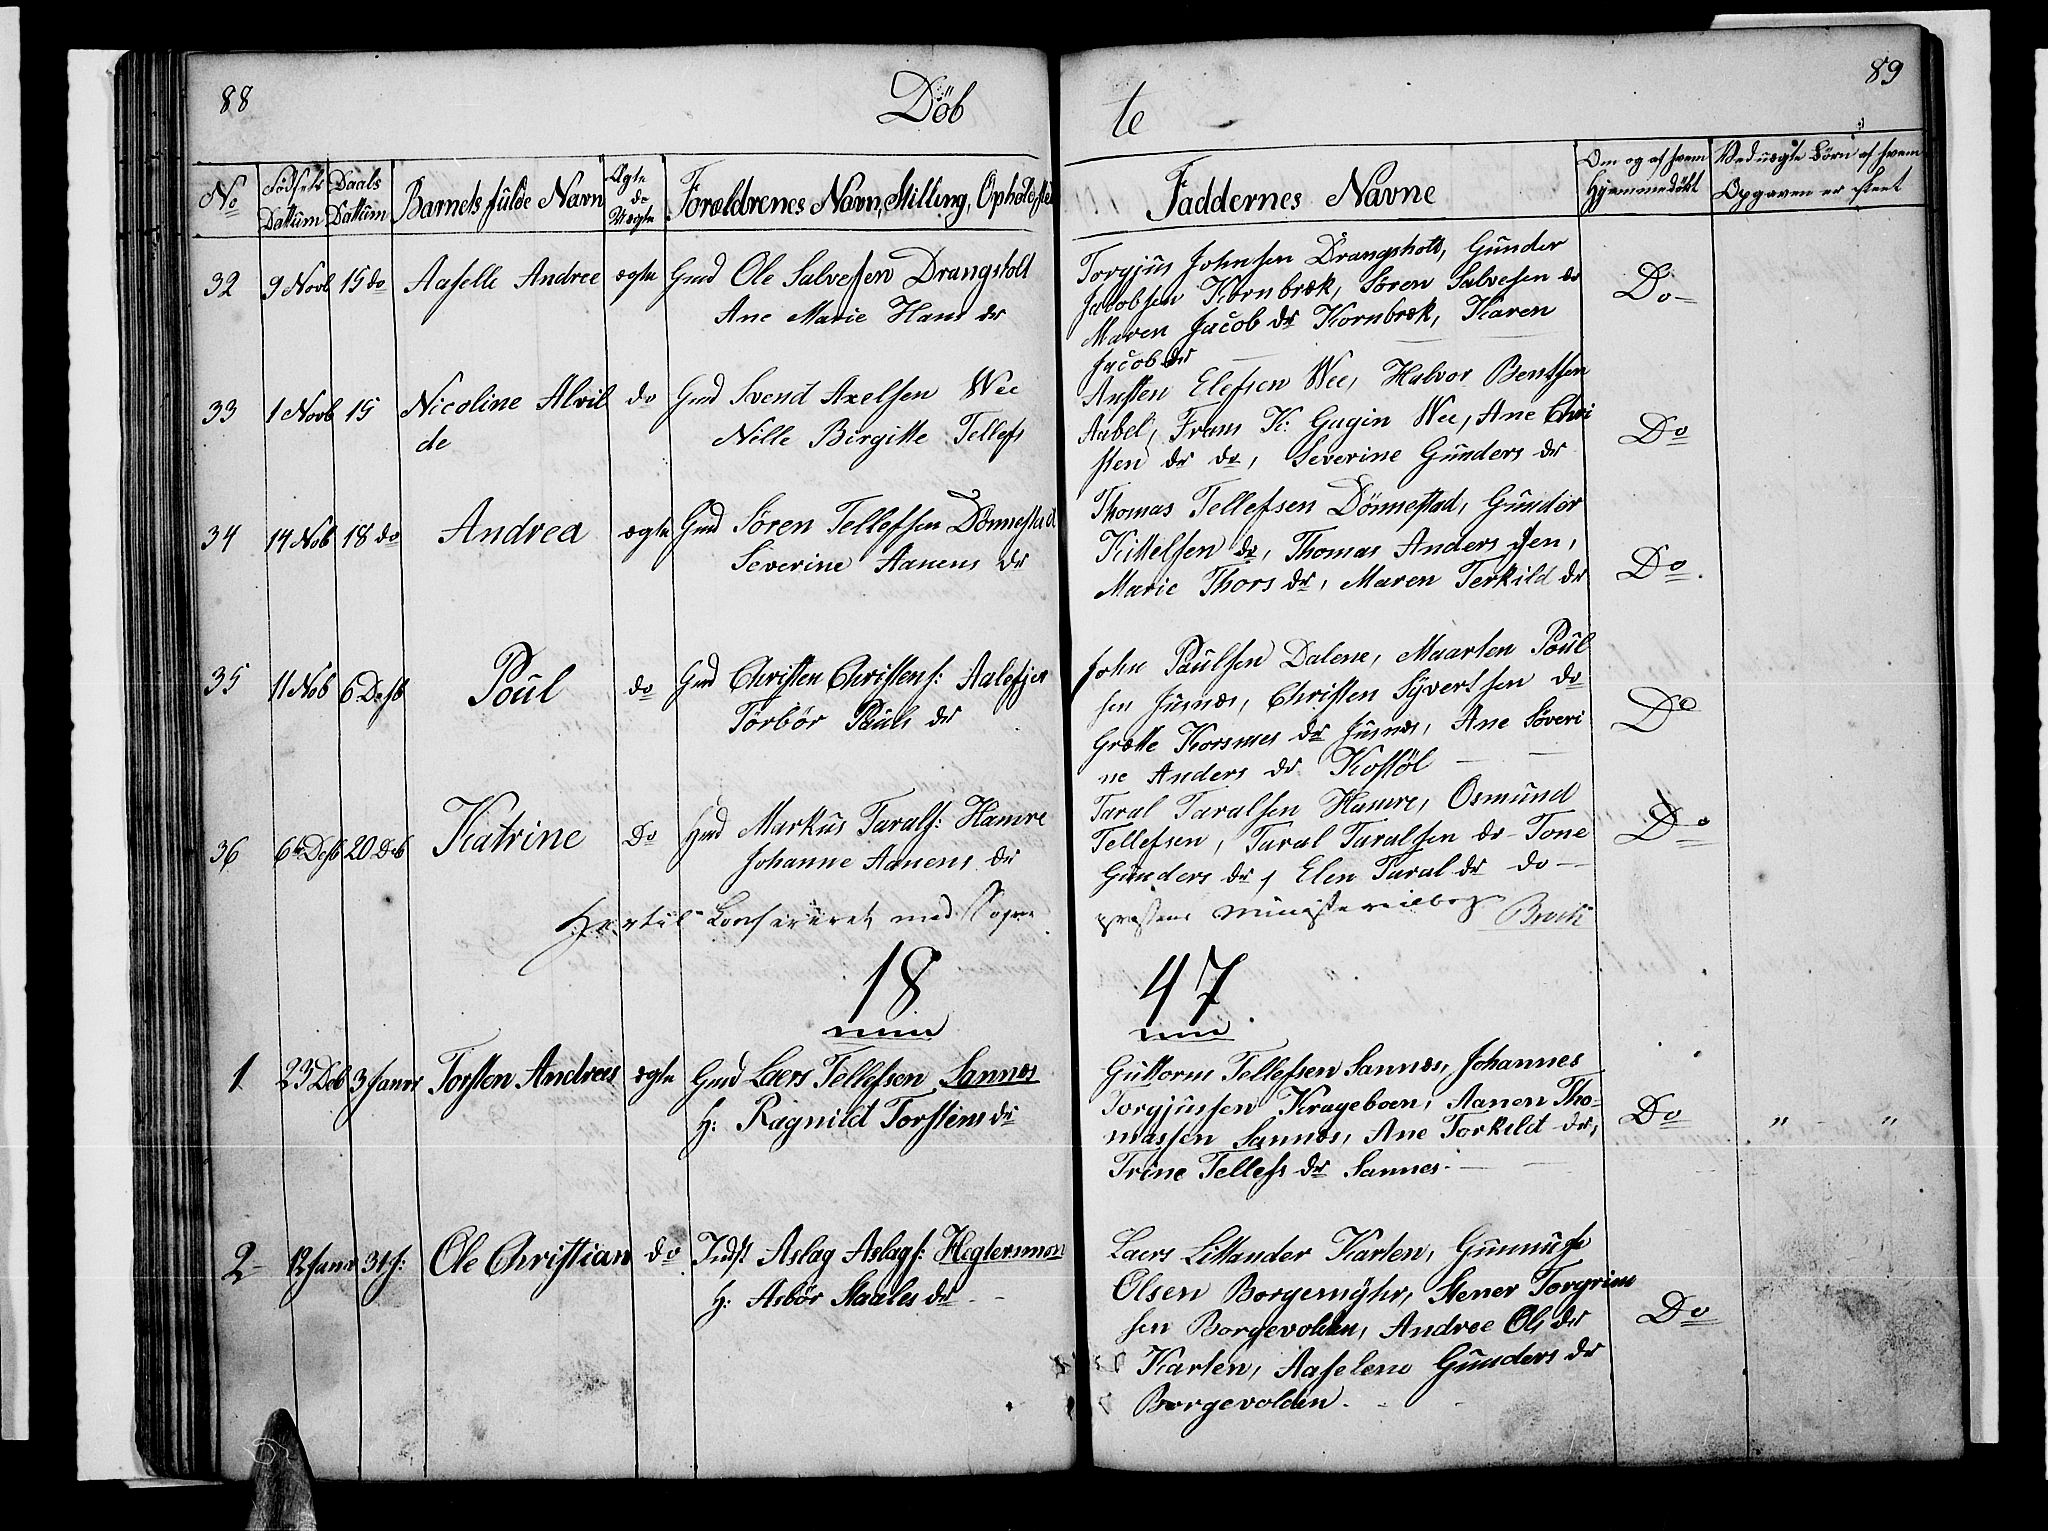 88
Döb
te
89
No
Födsels Dattum
Daabs Dattum
Barnets fulde Navn
Ægte do Uægte
Forældrenes Navn, Stilling, Opholdsted
Faddernes Navne
Om og af hvem Hjemmedöbt
Ved uægte Börn af hvem Opgaven er skeet
32 9 Novb 15 do Aaselle Andree ægte Gmd Ole Salvesen Drangsholt
Ane Marie Hans dr
Torgjus Johnsen Drangsholt, Gunder
Jacobsen Kornbræk, Sören Salvesen do
Maren Jacob dr Kornbræk, Karen
Jacob dr
Do
33 1 Novb 15 Nicoline Alvil
de
do Gmd Svend Axelsen Wee
Nille Birgitte Tellefs
Ansten Elefsen Wee, Halvor Bentsen
Aabel, Frans K: Gagin Wee, Ane Chri
sten dr do, Severine Gunders dr
Do
34 14 Nob 18 do Andrea ægte Gmd Sören Tellefsen Dönnestad
Severine Aanens dr
Thomas Tellefsen Dönnestad, Gunder
Kittelsen do, Thomas Andersen,
Marie Thors dr, Maren Terkild dr
Do
35 11 Nob 6 Desb Poul do Gmd Christen Christens: Aalefjer
Torbör Pauls dr
John Paulsen Dalene, Maarten Poul
sen Jusnæs, Christen Syvertsen do
Grætte Korsmes dr Jusnæs, Ane Söveri
ne Anders dr Kostöl
Do
36 6te Desb 20 Deb Katrine Do Hmd Markus Tarals: Hamre
Johanne Aanens dr
Taral Taralsen Hamre, Osmund
Tellefsen, Taral Taralsen do Tone
Gunders dr, Elen Taral dr do
Do
Hertil Konfereret med Sogne
præstens Ministerialbog
18
47
1 23 Deb 3 Janr Torsten Andreas ægte Gmd Laers Tellefsen Sannæs
H: Ragnild Torstens dr
Guttorm Tellefsen Sannæs, Johannes
Torgjussen Krageboen, Aanen Tho-
massen Sannæs, Ane Torkild dr,
Trine Tellefs dr Sannes.
Do " "
2 12 Janr 31 J: Ole Christian do Indst Aslag Aslags: Hegtermoen
H: Asbör Staales dr
Laers Littander Karten, Gunnuf
Olsen Borgemyhr, Stener Torgrim
sen Borgevolden, Andree Ols dr
Karten, Aaselene Gunders dr
Borgevolden.
Do